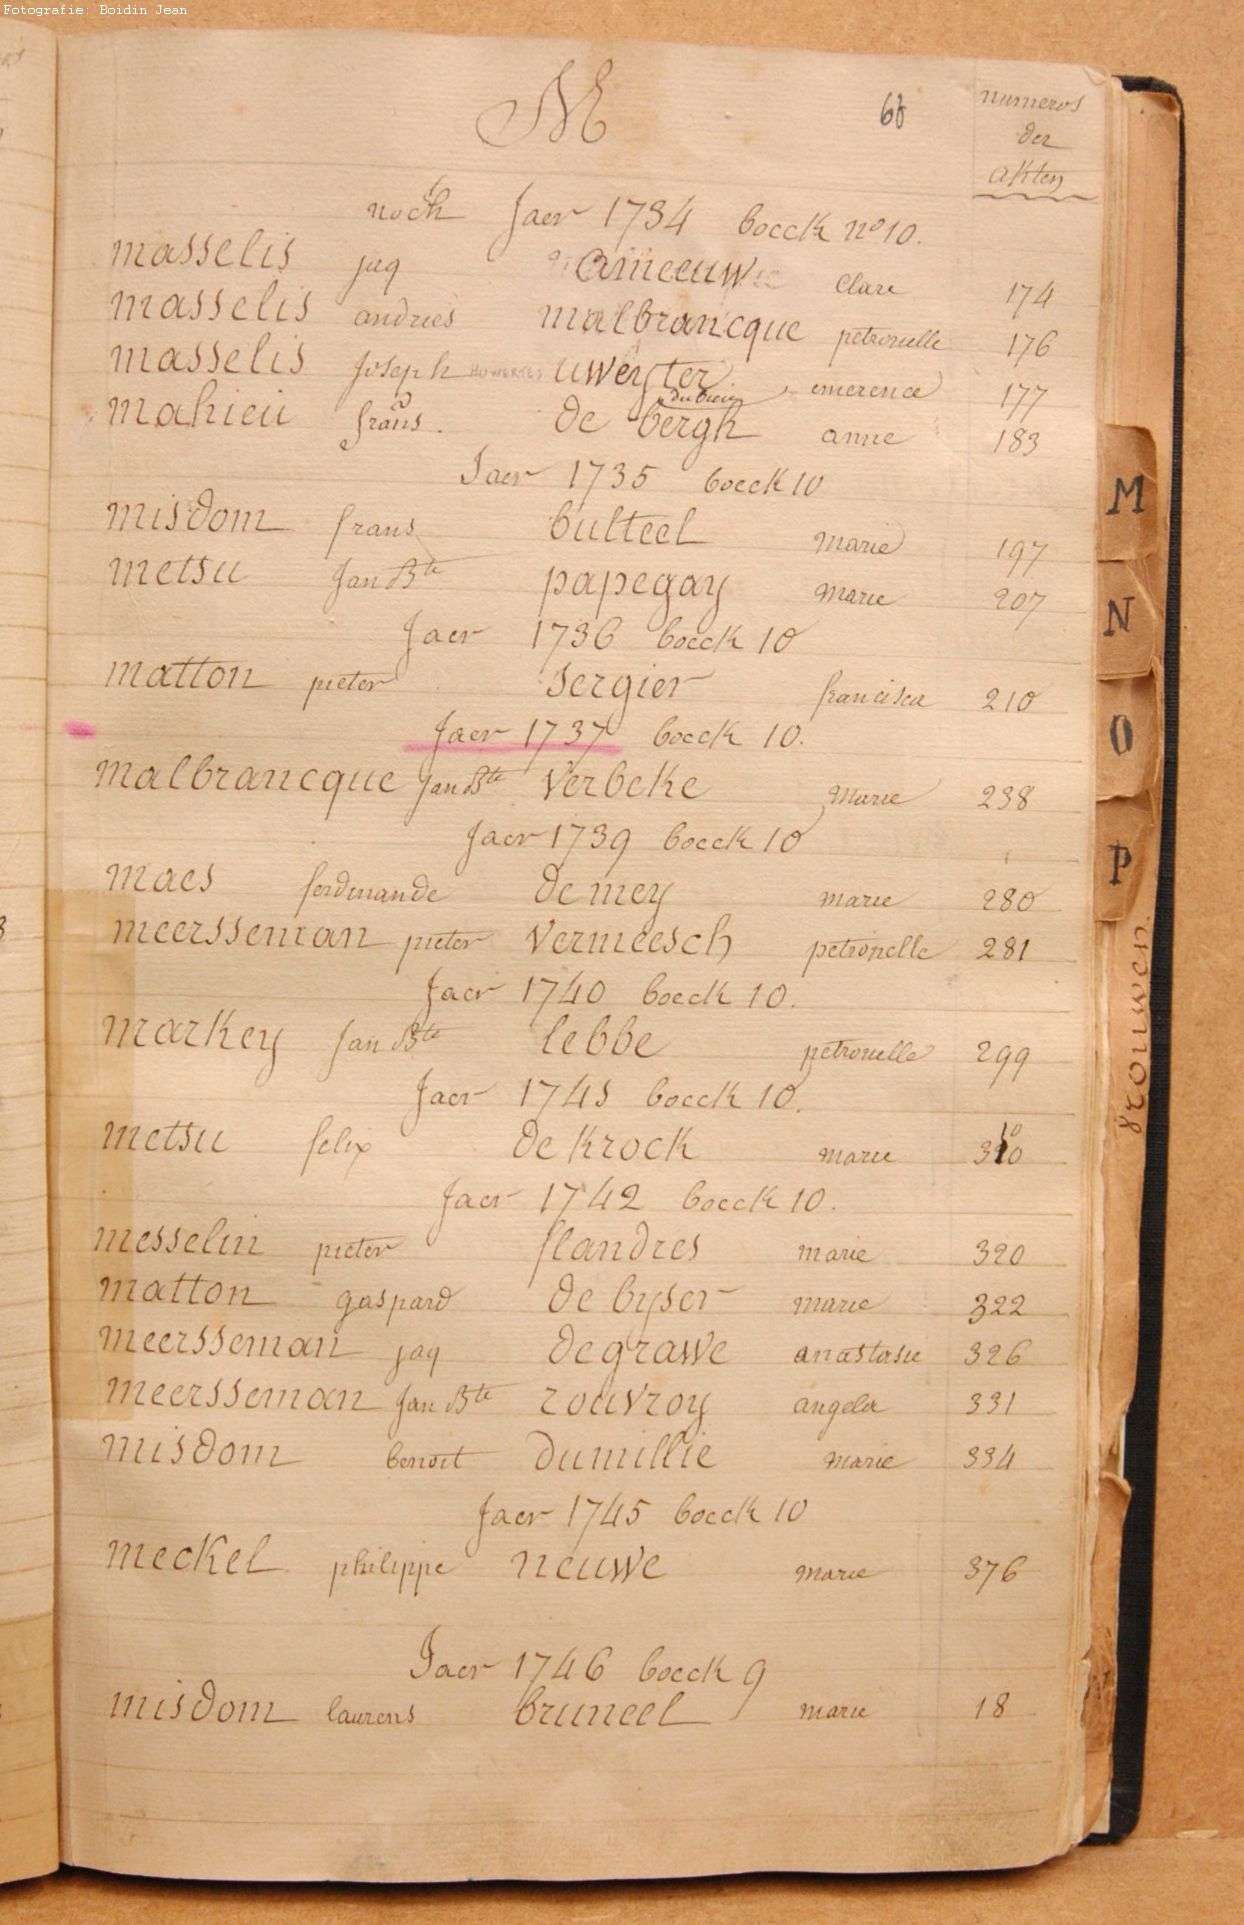 Fotografie: Boidin Jean
M
numeros
der
akten
noch Jaer 1734 boeck no 10.
masselis jaq ameeuw clare 174
masselis andries malbrancque petronelle 176
masselis Joseph uweyter emerence 177
mahieu frans. de bergh anne 183
Jaer 1735 boeck 10
misdom frans bulteel marie 197
metsu Jan Bte papegay marie 207
Jaer 1736 boeck 10
matton pieter Sergier francisca 210
Jaer 1737 boeck 10.
malbrancque Jan Bte Verbeke Marie 238
Jaer 1739 boeck 10
maes ferdinande de mey marie 280
meersseman pieter Vermeesch petronelle 281
Jaer 1740 boeck 10.
markey Jan Bte lebbe petronelle 299
Jaer 1741 boeck 10.
metsu felix de krock marie 310
Jaer 1742 boeck 10.
messelin pieter flandres marie 320
matton gaspard de byser marie 322
meersseman jaq degrawe anastasie 326
meersseman Jan Bte rouvroy angela 331
misdom benoit dumillie marie 334
Jaer 1745 boeck 10
meckel philippe neuwe marie 376
Jaer 1746 boeck 9
misdom laurens bruneel marie 18
M
N
O
P
vrouwen